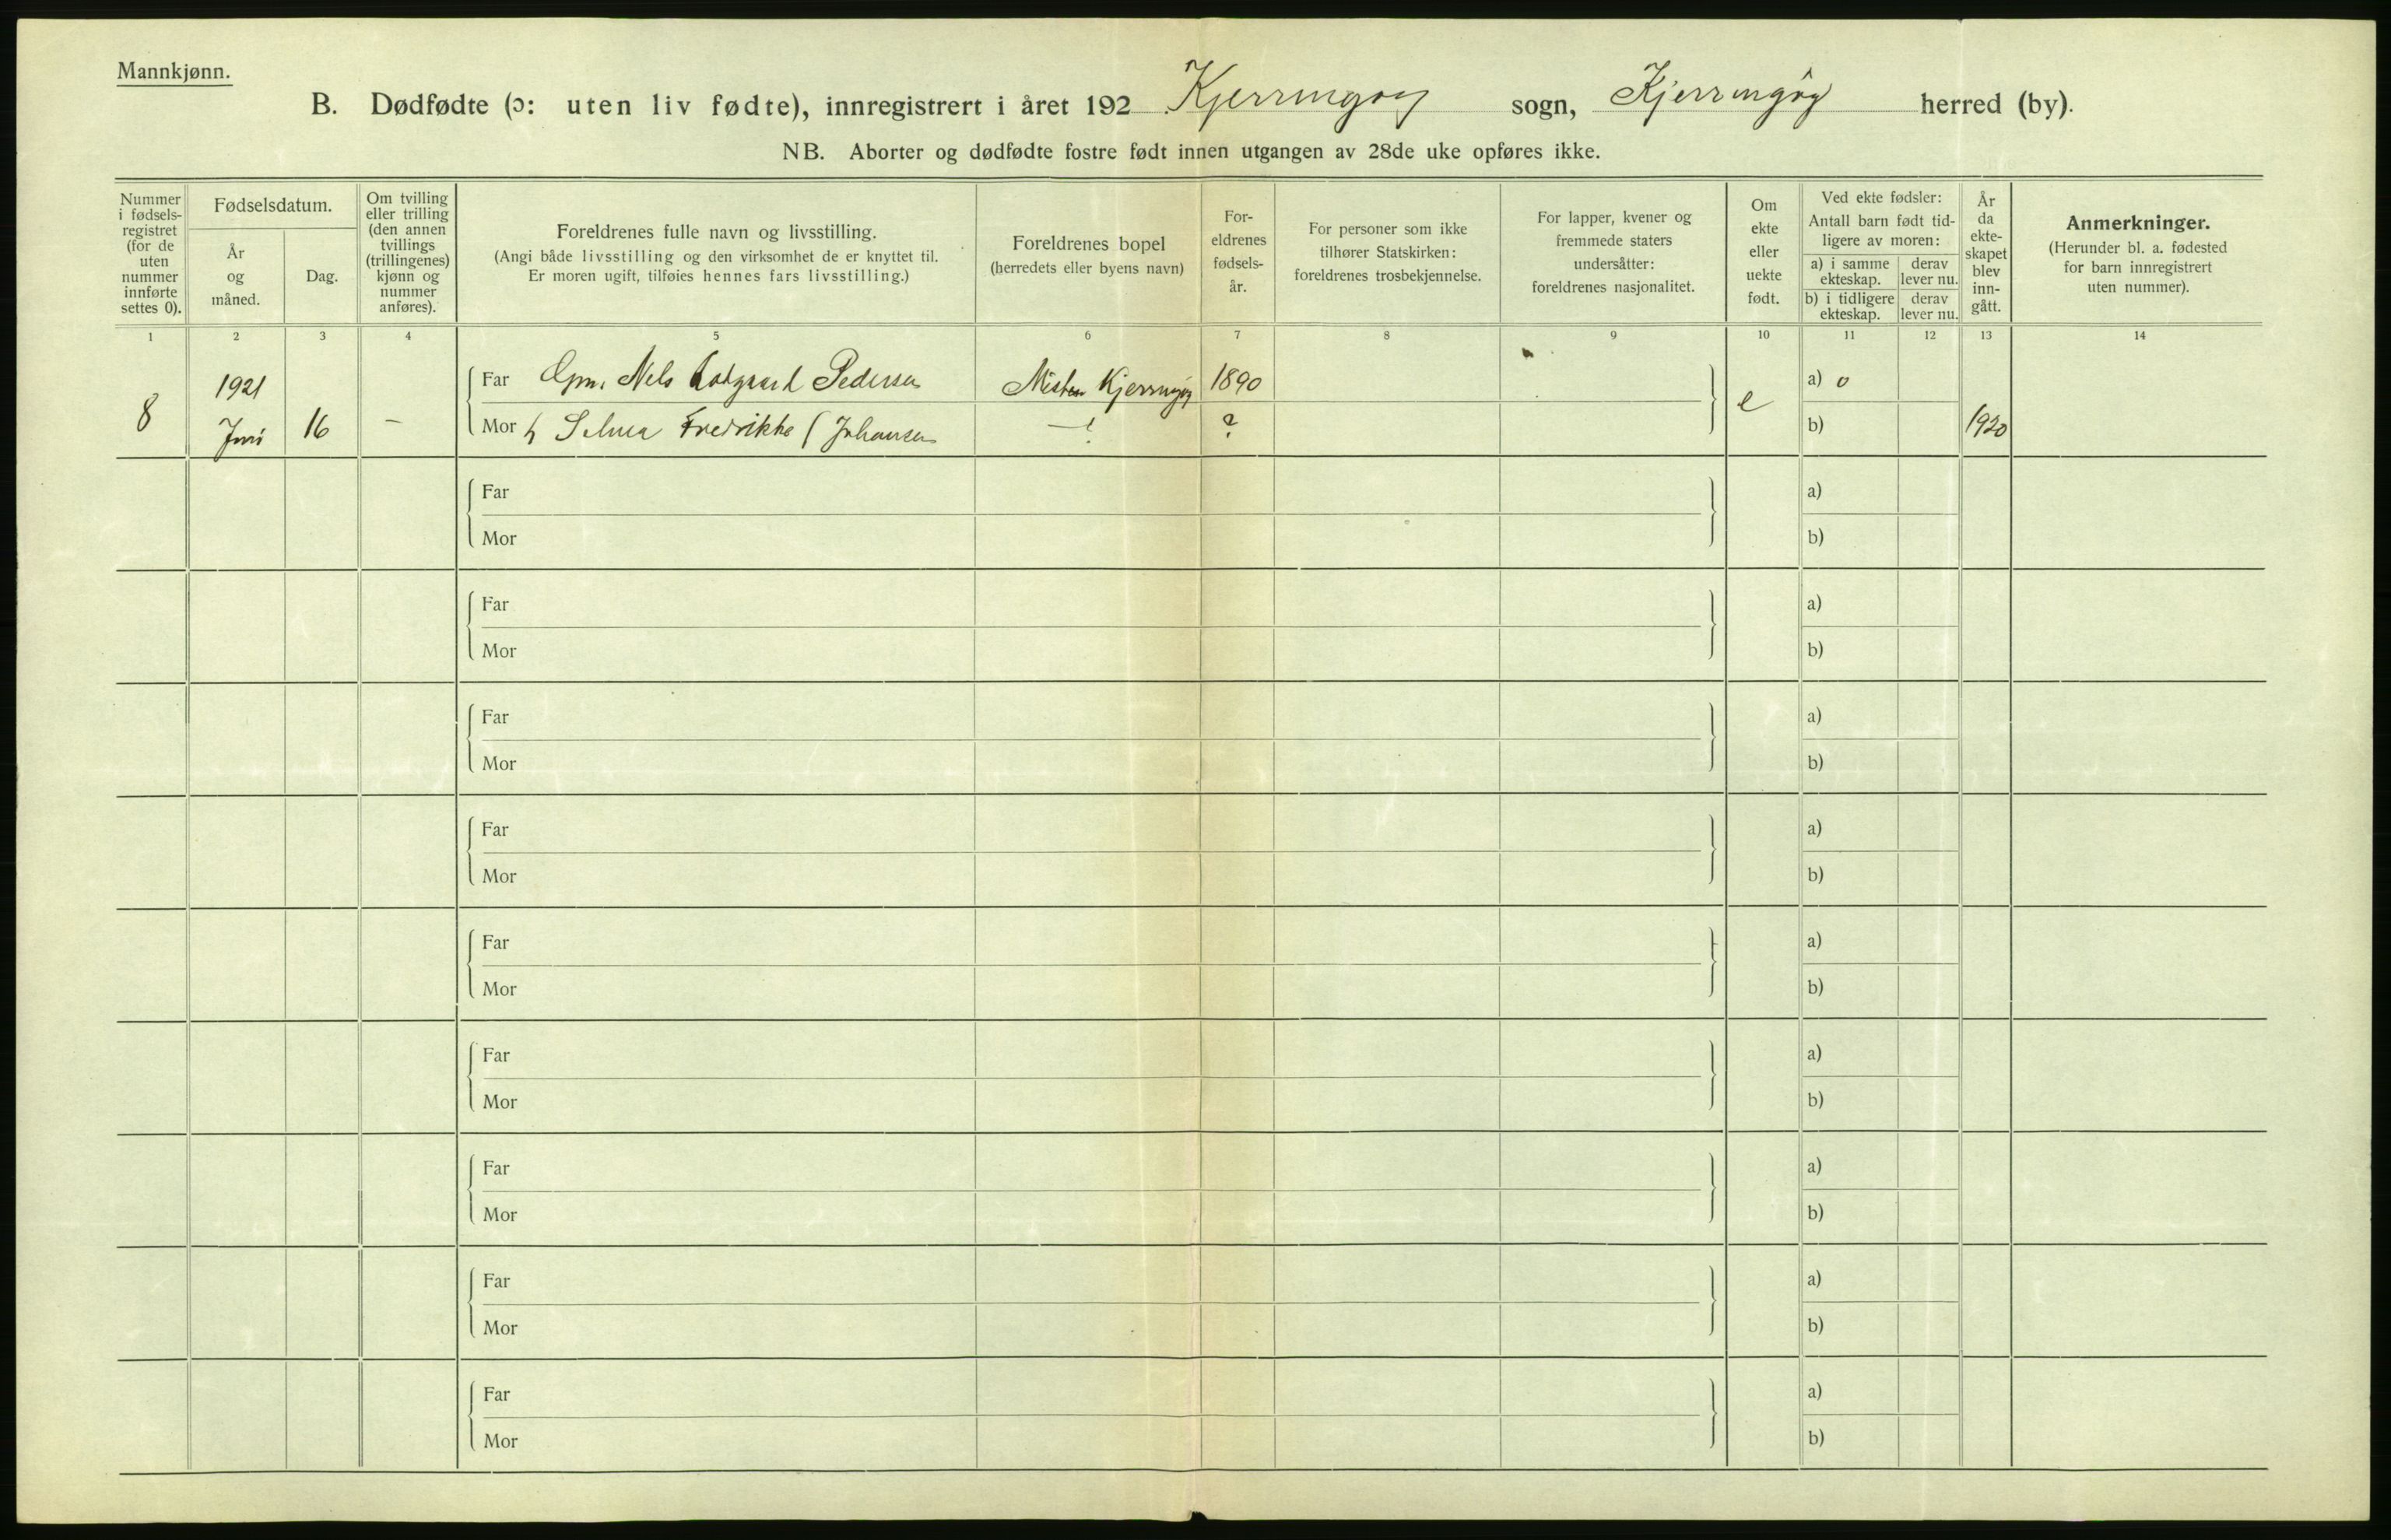 Mannkjønn.
B. Dødfødte (ɔ: uten liv fødte), innregistrert i året 192 Kjerringøy sogn, Kjerringøy herred (by).
NB. Aborter og dødfødte fostre født innen utgangen av 28de uke opføres ikke.
Nummer i fødsels-registret (for de uten nummer innførte settes 0).
Fødselsdatum.
År og måned.
Dag.
Om tvilling eller trilling (den annen tvillings (trillingenes) kjønn og nummer anføres).
Foreldrenes fulle navn og livsstilling.
(Angi både livsstilling og den virksomhet de er knyttet til.
Er moren ugift, tilføies hennes fars livsstilling.)
Foreldrenes bopel
(herredets eller byens navn)
For-eldrenes fødsels-år.
For personer som ikke tilhører Statskirken: foreldrenes trosbekjennelse.
For lapper, kvener og fremmede staters undersåtter: foreldrenes nasjonalitet.
Om ekte eller uekte født.
Ved ekte fødsler:
Antall barn født tid-ligere av moren:
a) i samme ekteskap.
derav lever nu.
b) i tidligere ekteskap.
derav lever nu.
År da ekte-skapet blev inn-gått.
Anmerkninger.
(Herunder bl. a. fødested for barn innregistrert uten nummer).
1 2 3 4 5 6 7 8 9 10 11 12 13 14
8 1921 Juni 16 —
Far Gm. Nels Pedersen Misten Kjerringøy 1890 e a) o
Mor h Selma Fredrikke ( Johansen —"— ? b) 1920
Far a)
Mor b)
Far a)
Mor b)
Far a)
Mor b)
Far a)
Mor b)
Far a)
Mor b)
Far a)
Mor b)
Far a)
Mor b)
Far a)
Mor b)
Far a)
Mor b)